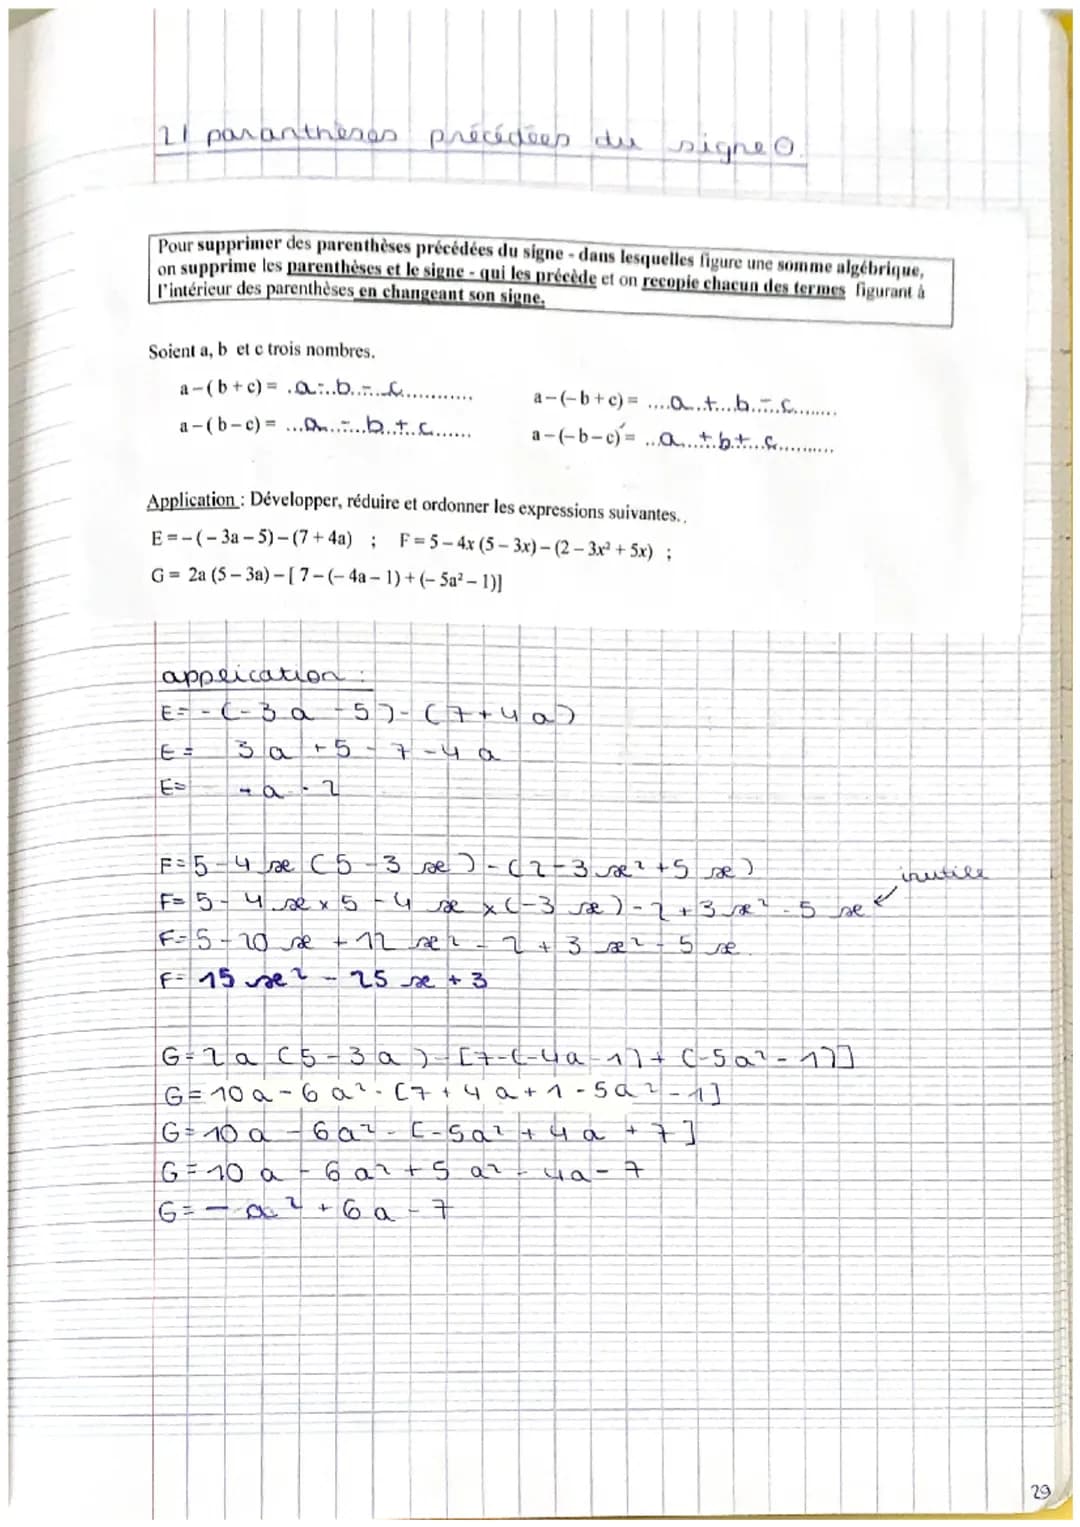 2) paranthèses précédées du signe ⊖.
Pour supprimer des parenthèses précédées du signe - dans lesquelles figure une somme algébrique,
on supprime les parenthèses et le signe - qui les précède et on recopie chacun des termes figurant à
l'intérieur des parenthèses en changeant son signe.
Soient a, b et c trois nombres.
a-(b+c) = .a-..b..-..c............
a-(-b+c) = ....a..+...b..-..c........
a-(b-c) = ...a..-...b..+..c......
a-(-b-c) = ...a...+.b+...c..........
Application : Développer, réduire et ordonner les expressions suivantes..
E = -(-3a-5)-(7+4a) ; F = 5-4x(5-3x)-(2-3x²+5x) ;
G = 2a(5-3a)-[7-(-4a-1)+(-5a²-1)]
application :
E = -(-3a-5)-(7+4a)
E = 3a+5-7-4a
E = -a-2
F = 5-4x(5-3x)-(2-3x²+5x)
inutile
F = 5-4x×5-4x×(-3x)-2+3x²-5x
F = 5-20x+12x²-2+3x²-5x
F = 15x²-25x+3
G = 2a(5-3a)-[7-(-4a-1)+(-5a²-1)]
G = 10a-6a²-[7+4a+1-5a²-1]
G = 10a-6a²-[-5a²+4a+7]
G = 10a-6a²+5a²-4a-7
G = -a²+6a-7
29